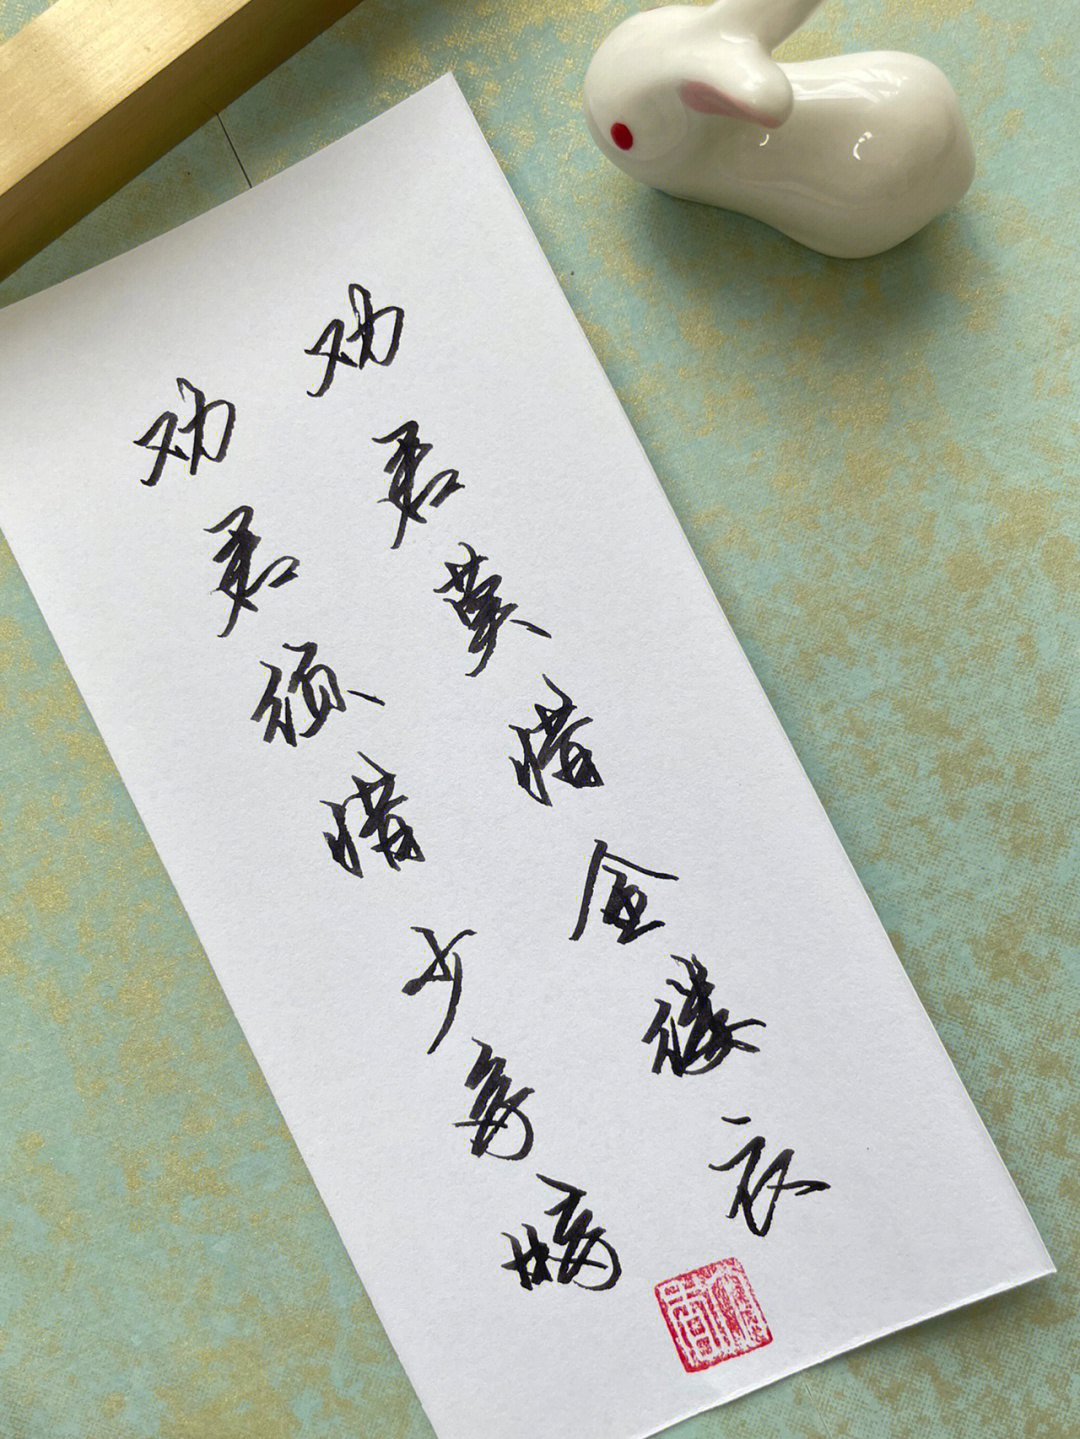 劝君莫惜金缕衣
劝君须惜少年时